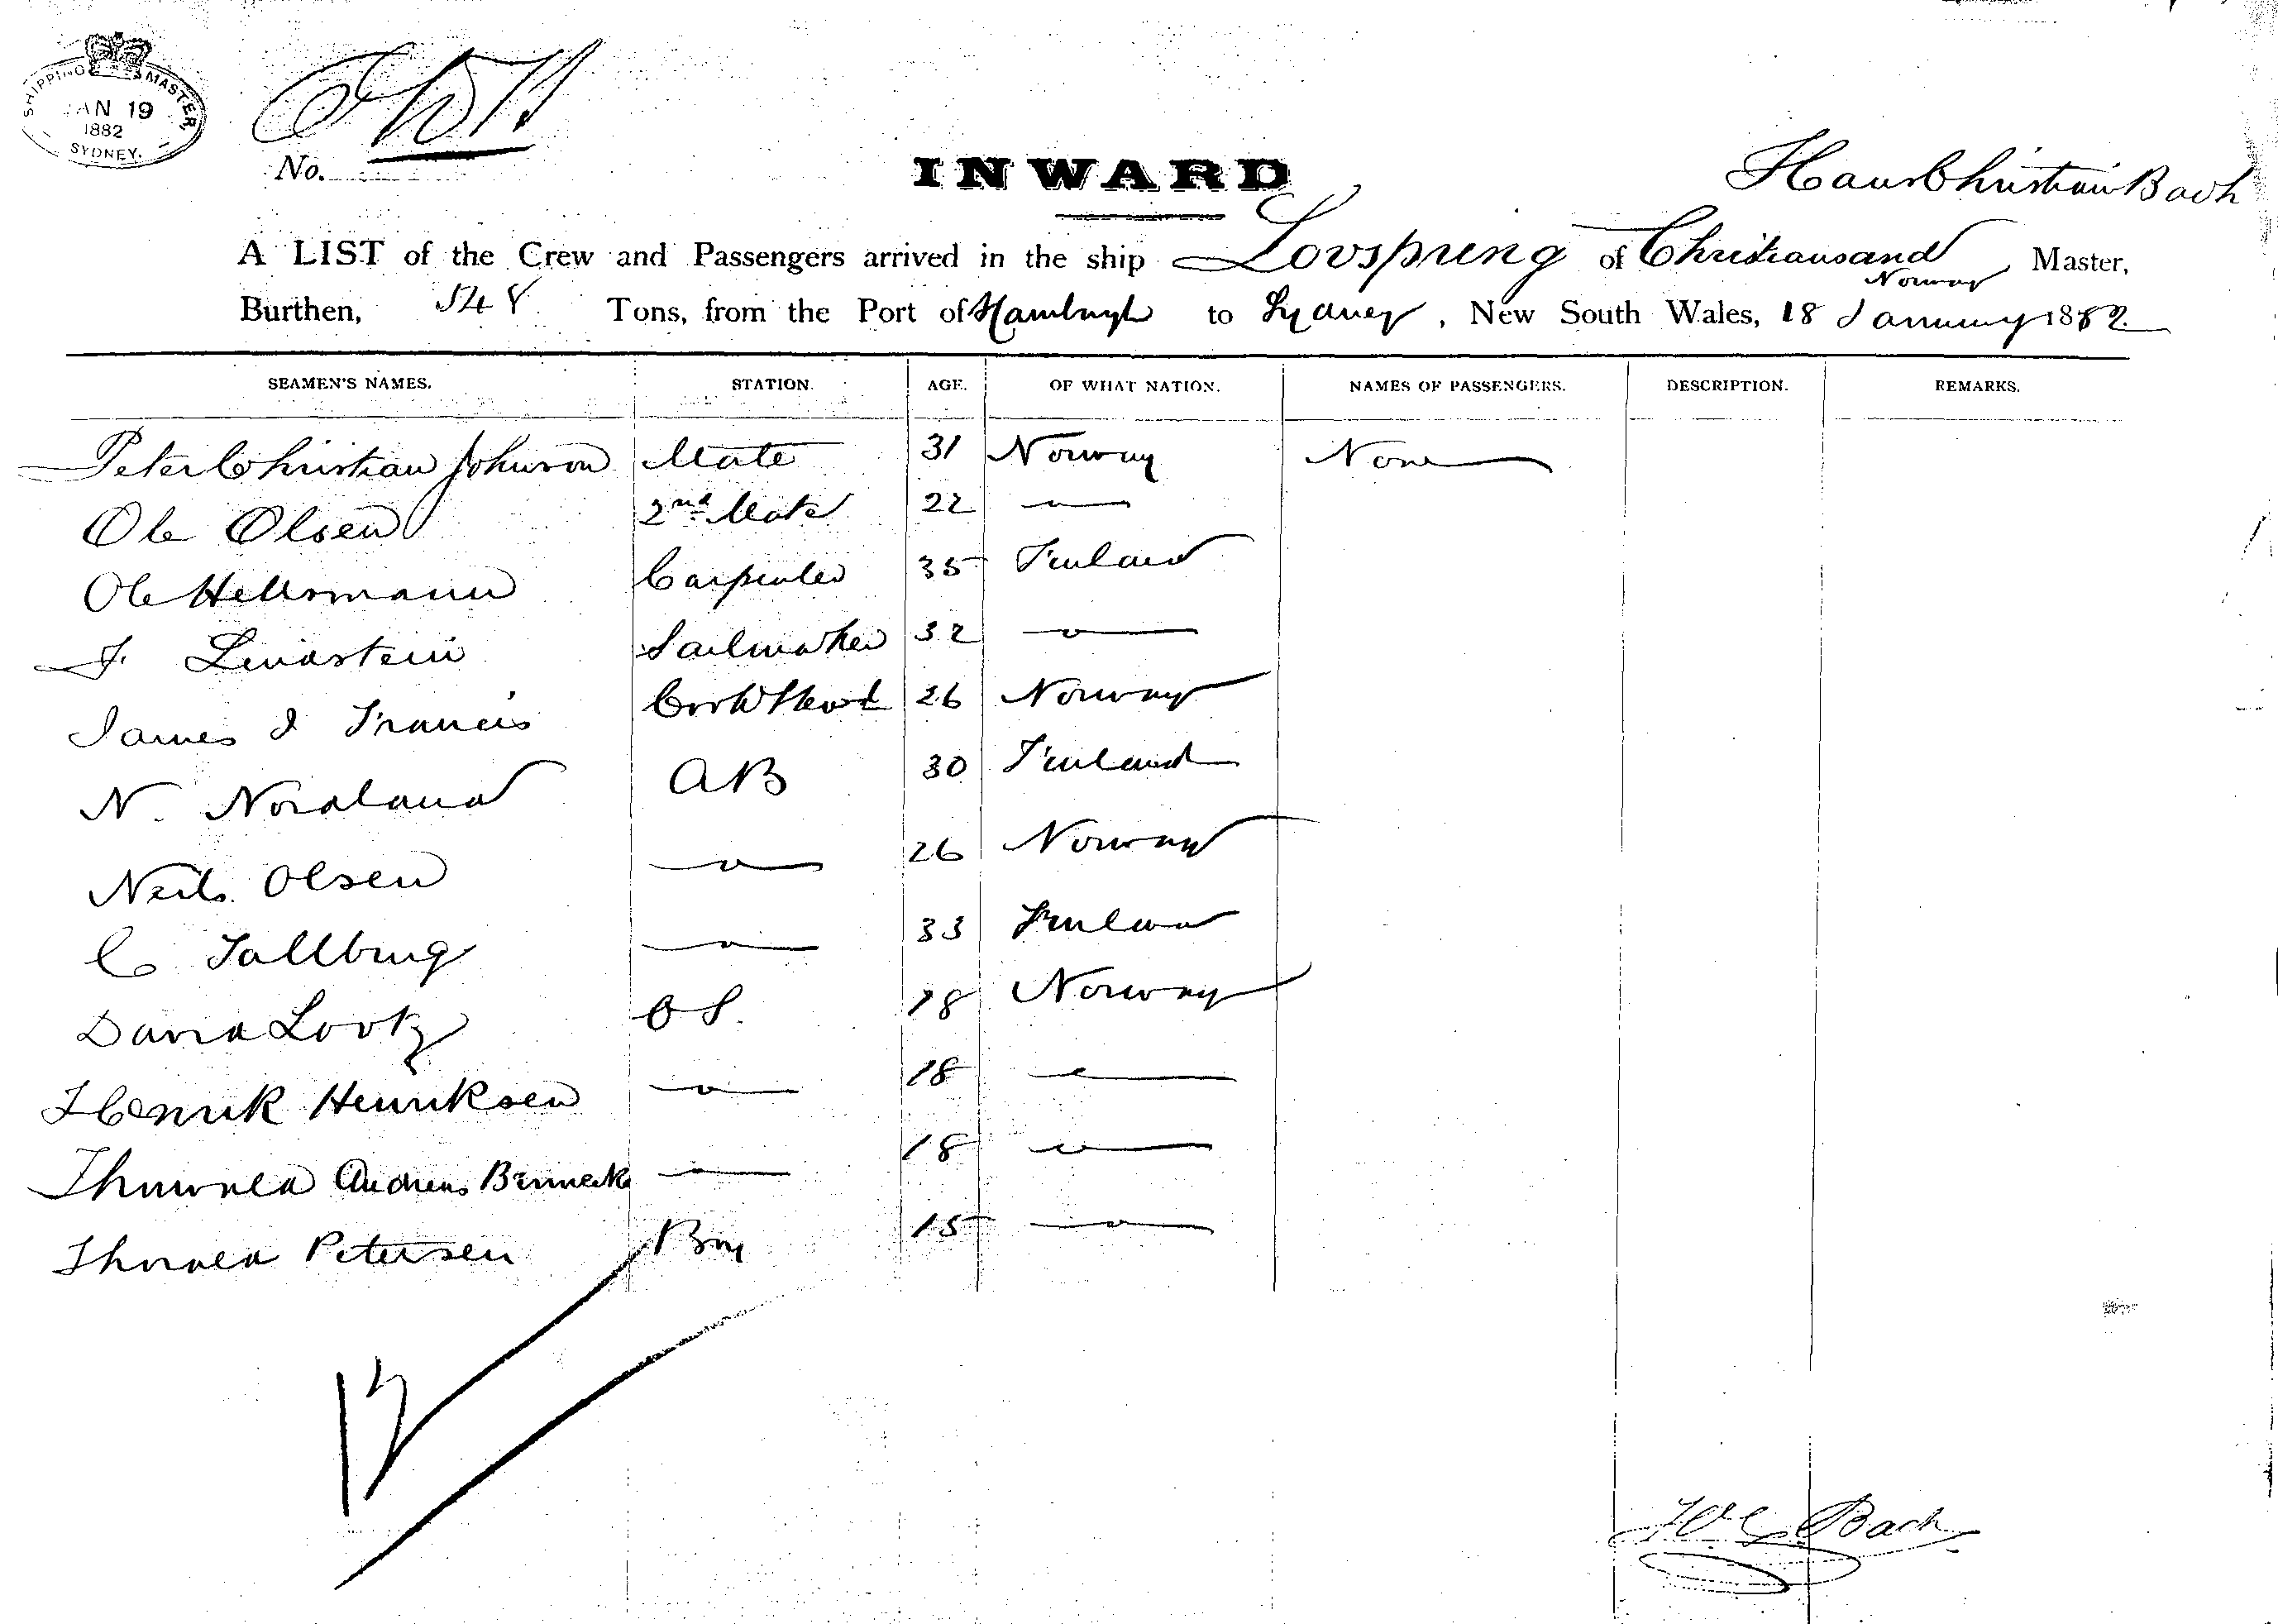 SHIPPING MASTER,
JAN 19
1882
SYDNEY.
No.
INWARD
Hans Christian Bach
A LIST of the Crew and Passengers arrived in the ship Lovspring of Christiansand Norway, Master,
Burthen, 548 Tons, from the Port of Hamburgh to Sydney, New South Wales, 18 January 1882
SEAMEN'S NAMES. STATION. AGE. OF WHAT NATION. NAMES OF PASSENGERS. DESCRIPTION. REMARKS.
Peter Christian Johnson Mate 31 Norway None
Ole Olsen 2nd Mate 22 "
Ole Hellsmann Carpenter 35 Finland
J. Lindstein Sailmaker 32 "
James J Francis Cook & Steward 26 Norway
N. Nordland AB 30 Finland
Neils Olsen " 26 Norway
C Tallbug " 33 Finland
David Lootz OS. 18 Norway
Henrik Henriksen " 18 "
Andreas " 18 "
Petersen Boy 15 "
12
H C Bach